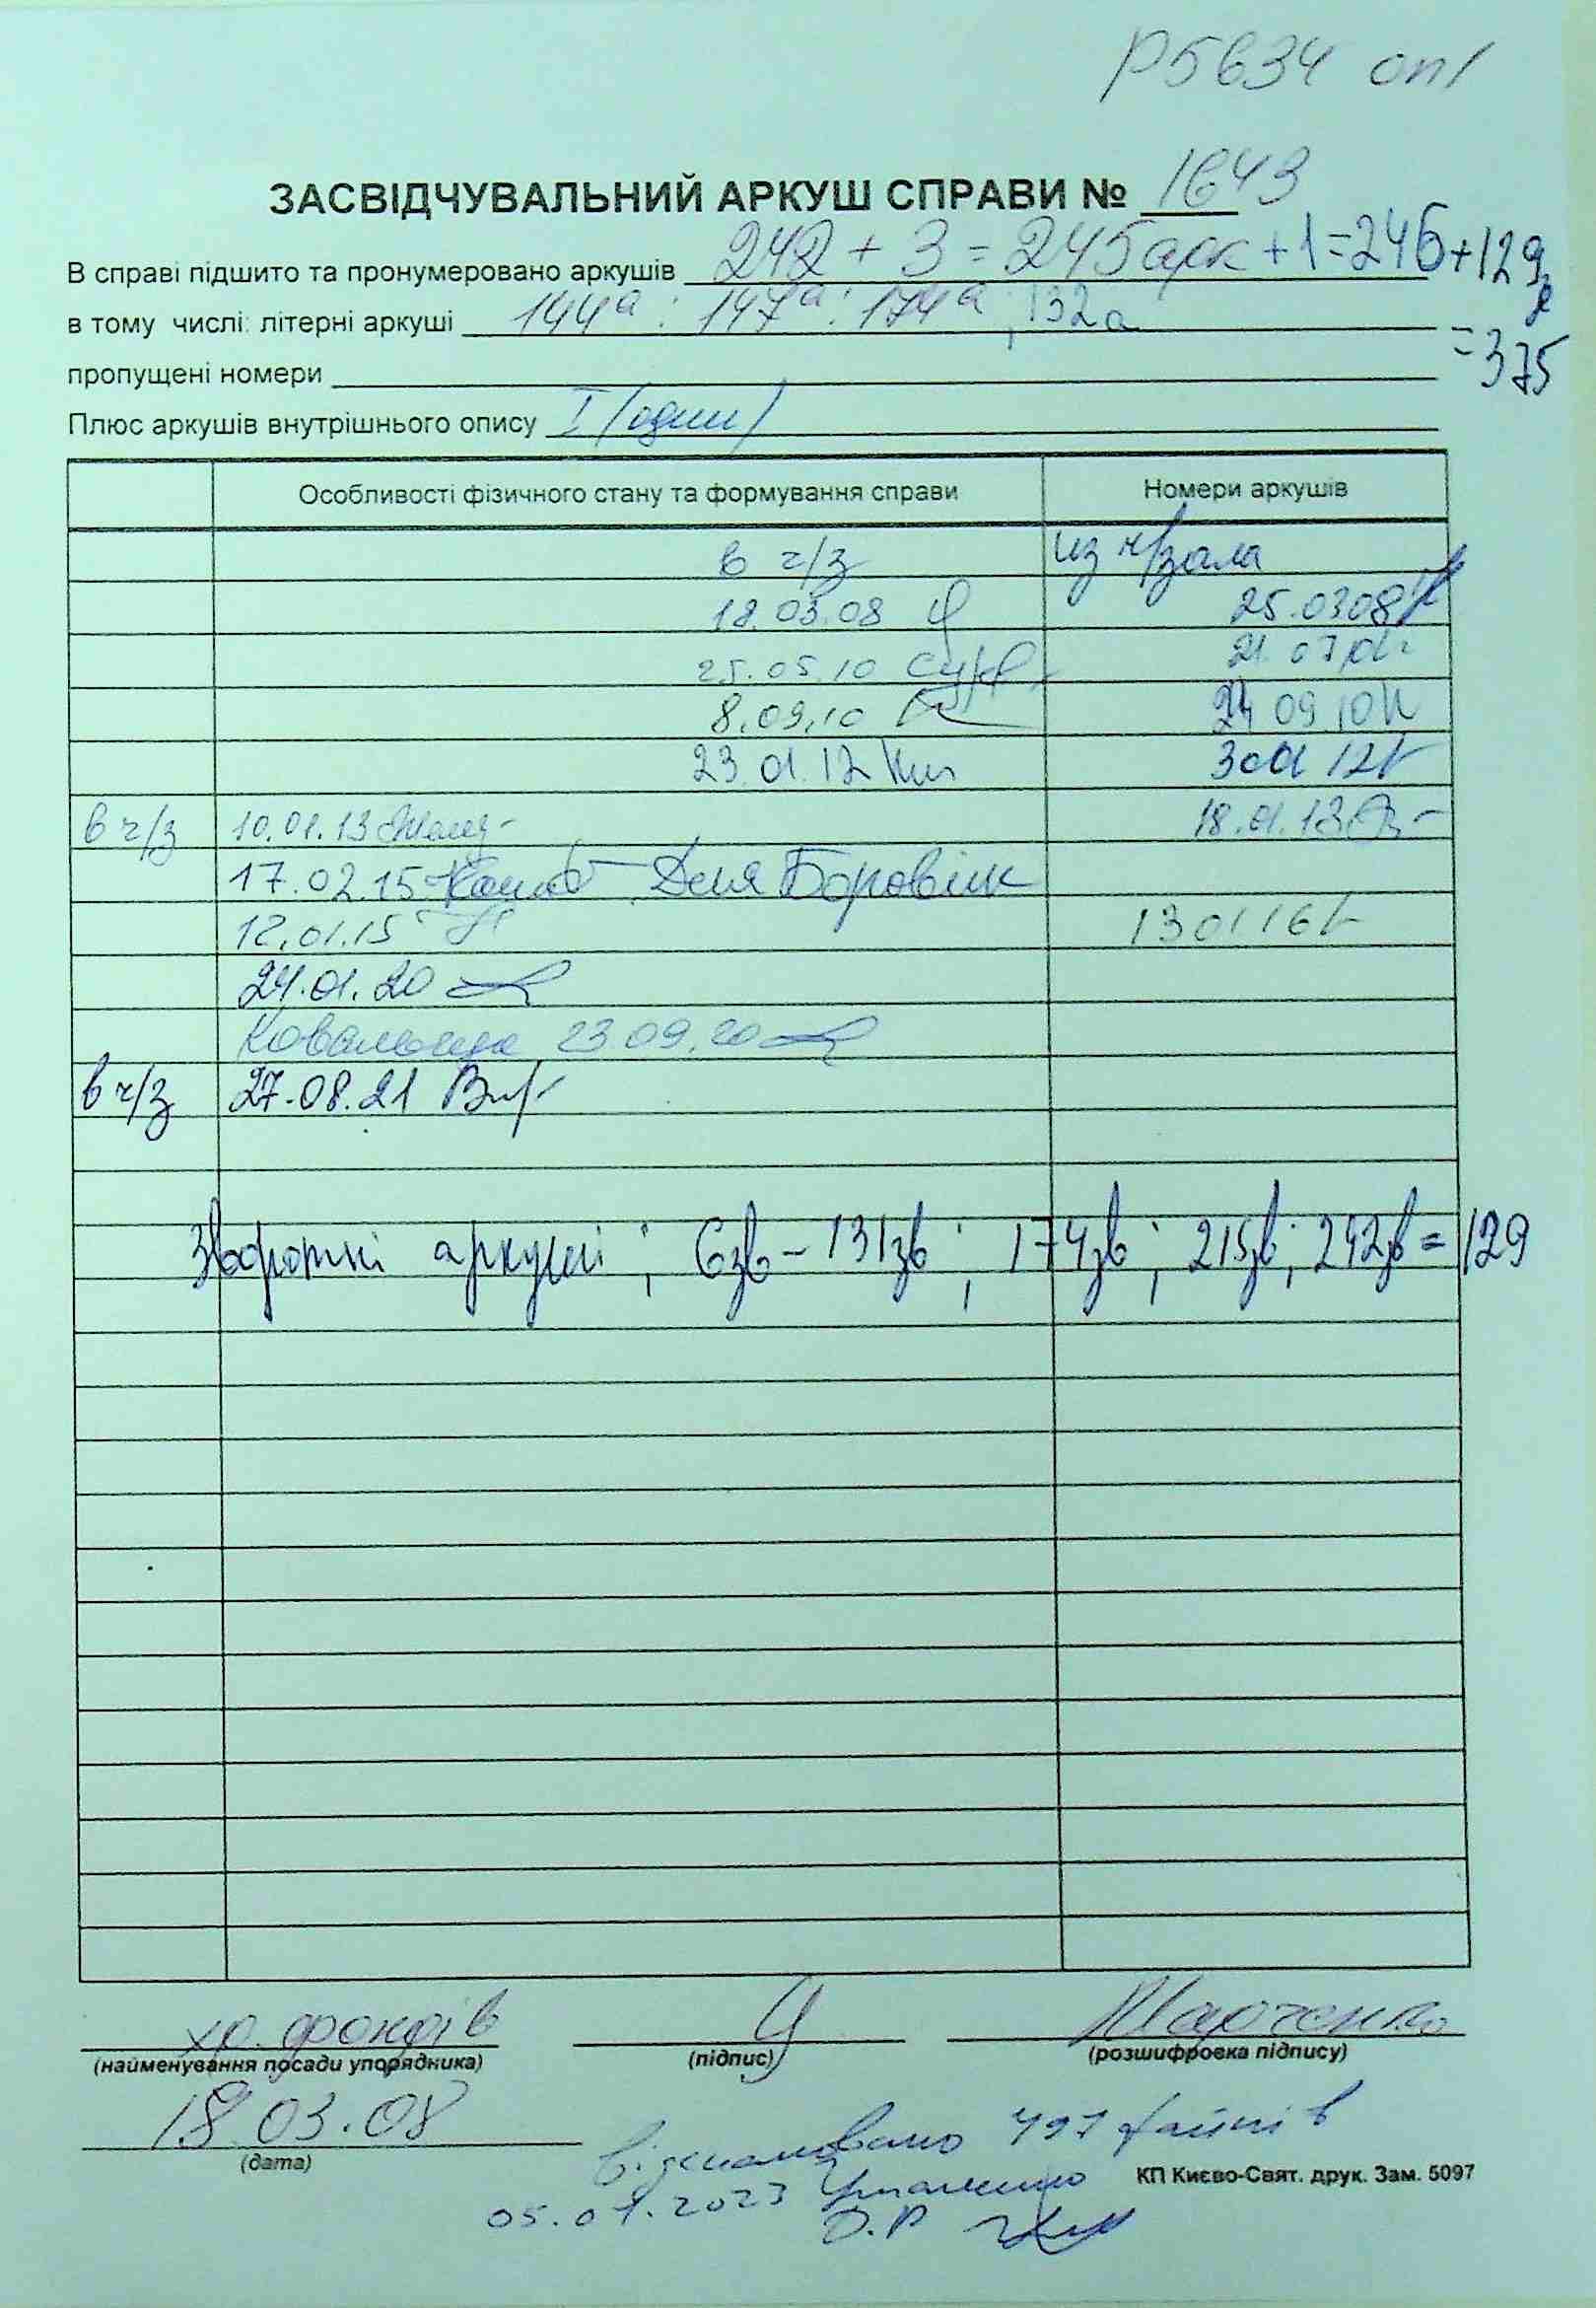 Р5634 оп1
ЗАСВІДЧУВАЛЬНИЙ АРКУШ СПРАВИ № 1643
В справі підшито та пронумеровано аркушів 242 + 3 = 245 арк + 1 = 246 + 129
= 375
в тому числі: літерні аркуші 144а; 147а; 174а; 132а
пропущені номери
Плюс аркушів внутрішнього опису I (один)
Особливості фізичного стану та формування справи Номери аркушів
в ч/з из ч/зала
18.03.08 25.0308
25.05.10
8.09.10 24 09.10
23.01.12 30 01 12
в ч/з 10.01.13 18.01.13
17.02.15 Боровік
12.01.15 130116
24.01.20
23.09.20
в ч/з 27.08.21
Зворотні аркуші: 6зв – 131зв; 174зв; 215зв; 242зв = 129
хр. фондів Марченко
(найменування посади упорядника) (підпис) (розшифровка підпису)
18.03.08
(дата)
Відскановано 497 файлів
КП Києво-Свят. друк. Зам. 5097
05.01.2023
О.Р